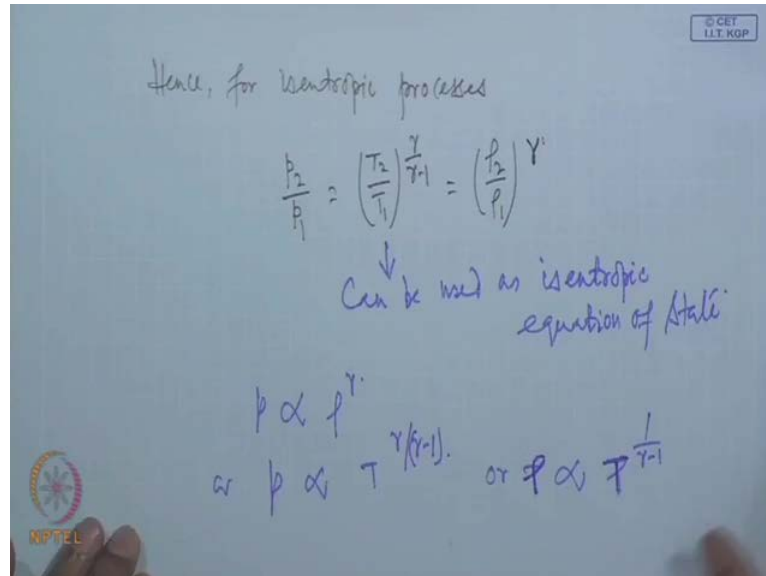 © CET
I.I.T. KGP
Hence, for isentropic processes
p₂/p₁ = (T₂/T₁)^(γ/(γ-1)) = (ρ₂/ρ₁)^γ
↓
Can be used as isentropic
equation of state.
p ∝ ρ^γ.
or p ∝ T^(γ/(γ-1)). or ρ ∝ T^(1/(γ-1))
NPTEL